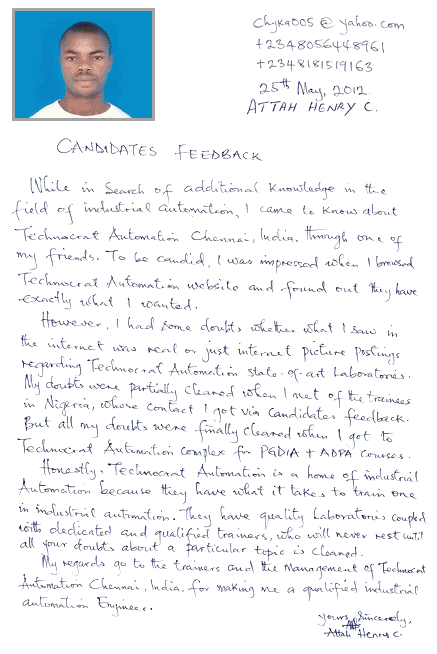 chyka005@yahoo.com
+2348056448961
+2348181519163
25th May, 2012.
ATTAH HENRY C.
CANDIDATES FEEDBACK
While in search of additional knowledge in the
field of industrial automation, I came to know about
Technocrat Automation Chennai, India, through one of
my friends. To be candid, I was impressed when I browsed
Technocrat Automation website and found out they have
exactly what I wanted.
However, I had some doubts whether what I saw in
the internet was real or just internet picture postings
regarding Technocrat Automation state-of-art Laboratories.
My doubts were partially cleared when I met of the trainees
in Nigeria, whose contact I got via candidates feedback.
But all my doubts were finally cleared when I got to
Technocrat Automation complex for PGDIA + ADPA courses.
Honestly, Technocrat Automation is a home of industrial
Automation because they have what it takes to train one
in industrial automation. They have quality Laboratories coupled
with dedicated and qualified trainers, who will never rest until
all your doubts about a particular topic is cleared.
My regards go to the trainers and the Management of Technocrat
Automation Chennai, India, for making me a qualified industrial
automation Engineer.
Yours Sincerely,
Attah Henry C.